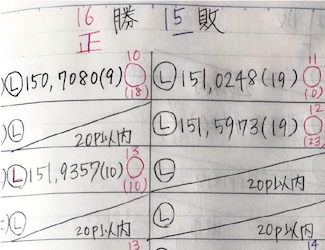 16勝 15敗
正
10 11
)Ⓛ150,7080(9)〇(18) Ⓛ151,0248(19)〇(10)
12
)Ⓛ 20P以内 Ⓛ151,5973(19)〇(23)
13
)Ⓛ151,9357(10)〇(10) Ⓛ 20P以内
Ⓛ 20P以内 Ⓛ 20P以内
13 14